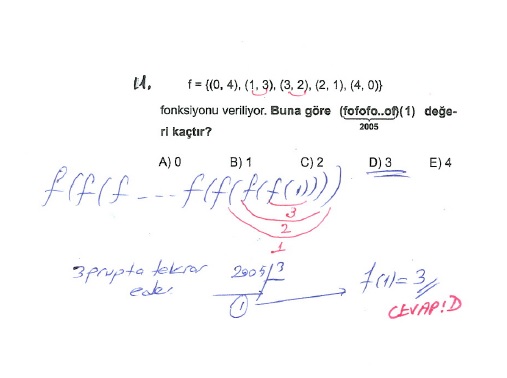 11. f = {(0, 4), (1, 3), (3, 2), (2, 1), (4, 0)}
fonksiyonu veriliyor. Buna göre (fofofo..of)(1) değe-
2005
ri kaçtır?
A) 0 B) 1 C) 2 D) 3 E) 4
f(f(f ---- f(f(f(f(1))))
3
2
1
3 grupta tekrar 2005/3 f(1)=3
eder 1
CEVAP:D